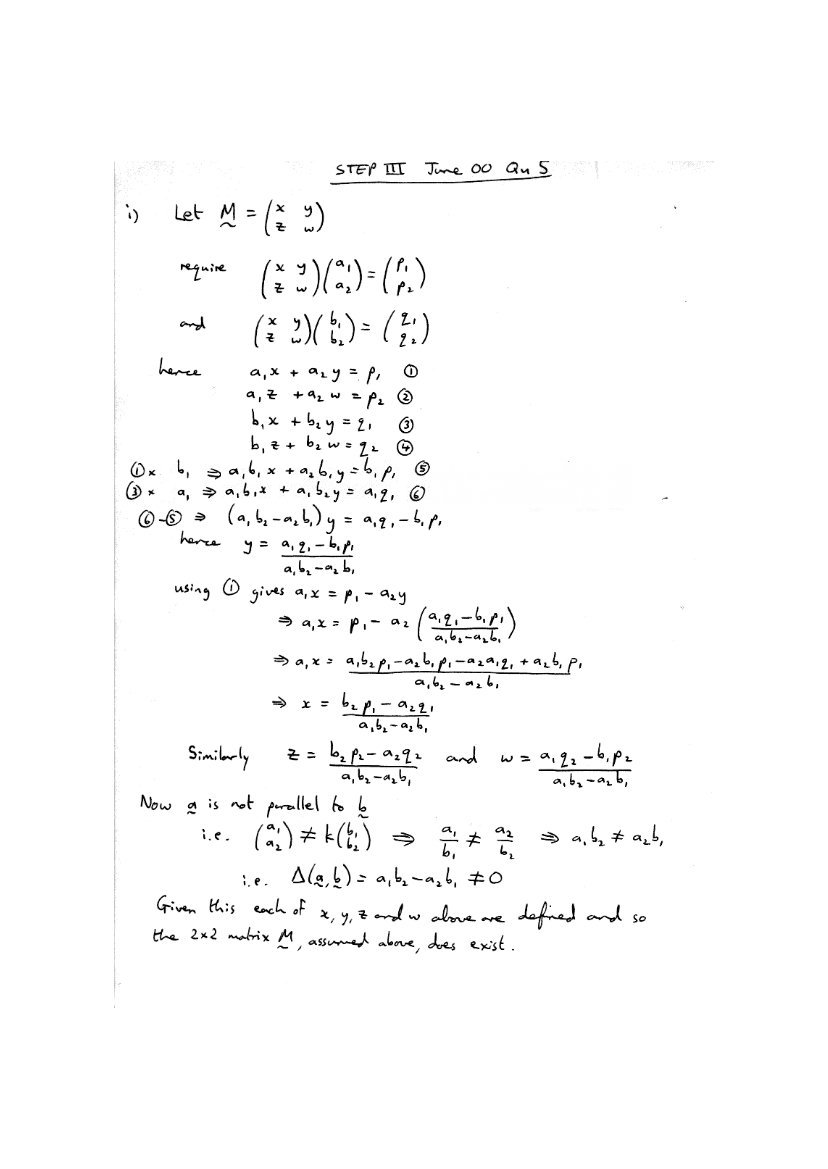 STEP III June 00 Qu 5
i) Let M = (x y / z w)
require (x y / z w)(a₁ / a₂) = (p₁ / p₂)
and (x y / z w)(b₁ / b₂) = (q₁ / q₂)
hence a₁x + a₂y = p₁ ①
a₁z + a₂w = p₂ ②
b₁x + b₂y = q₁ ③
b₁z + b₂w = q₂ ④
①× b₁ ⇒ a₁b₁x + a₂b₁y = b₁p₁ ⑤
③× a₁ ⇒ a₁b₁x + a₁b₂y = a₁q₁ ⑥
⑥-⑤ ⇒ (a₁b₂-a₂b₁)y = a₁q₁-b₁p₁
hence y = (a₁q₁-b₁p₁)/(a₁b₂-a₂b₁)
using ① gives a₁x = p₁ - a₂y
⇒ a₁x = p₁ - a₂((a₁q₁-b₁p₁)/(a₁b₂-a₂b₁))
⇒ a₁x = (a₁b₂p₁-a₂b₁p₁-a₂a₁q₁ + a₂b₁p₁)/(a₁b₂-a₂b₁)
⇒ x = (b₂p₁-a₂q₁)/(a₁b₂-a₂b₁)
Similarly z = (b₂p₂-a₂q₂)/(a₁b₂-a₂b₁) and w = (a₁q₂-b₁p₂)/(a₁b₂-a₂b₁)
Now a is not parallel to b
i.e. (a₁ / a₂) ≠ k(b₁ / b₂) ⇒ a₁/b₁ ≠ a₂/b₂ ⇒ a₁b₂ ≠ a₂b₁
i.e. Δ(a,b) = a₁b₂-a₂b₁ ≠ 0
Given this each of x, y, z and w above are defined and so
the 2×2 matrix M, assumed above, does exist.